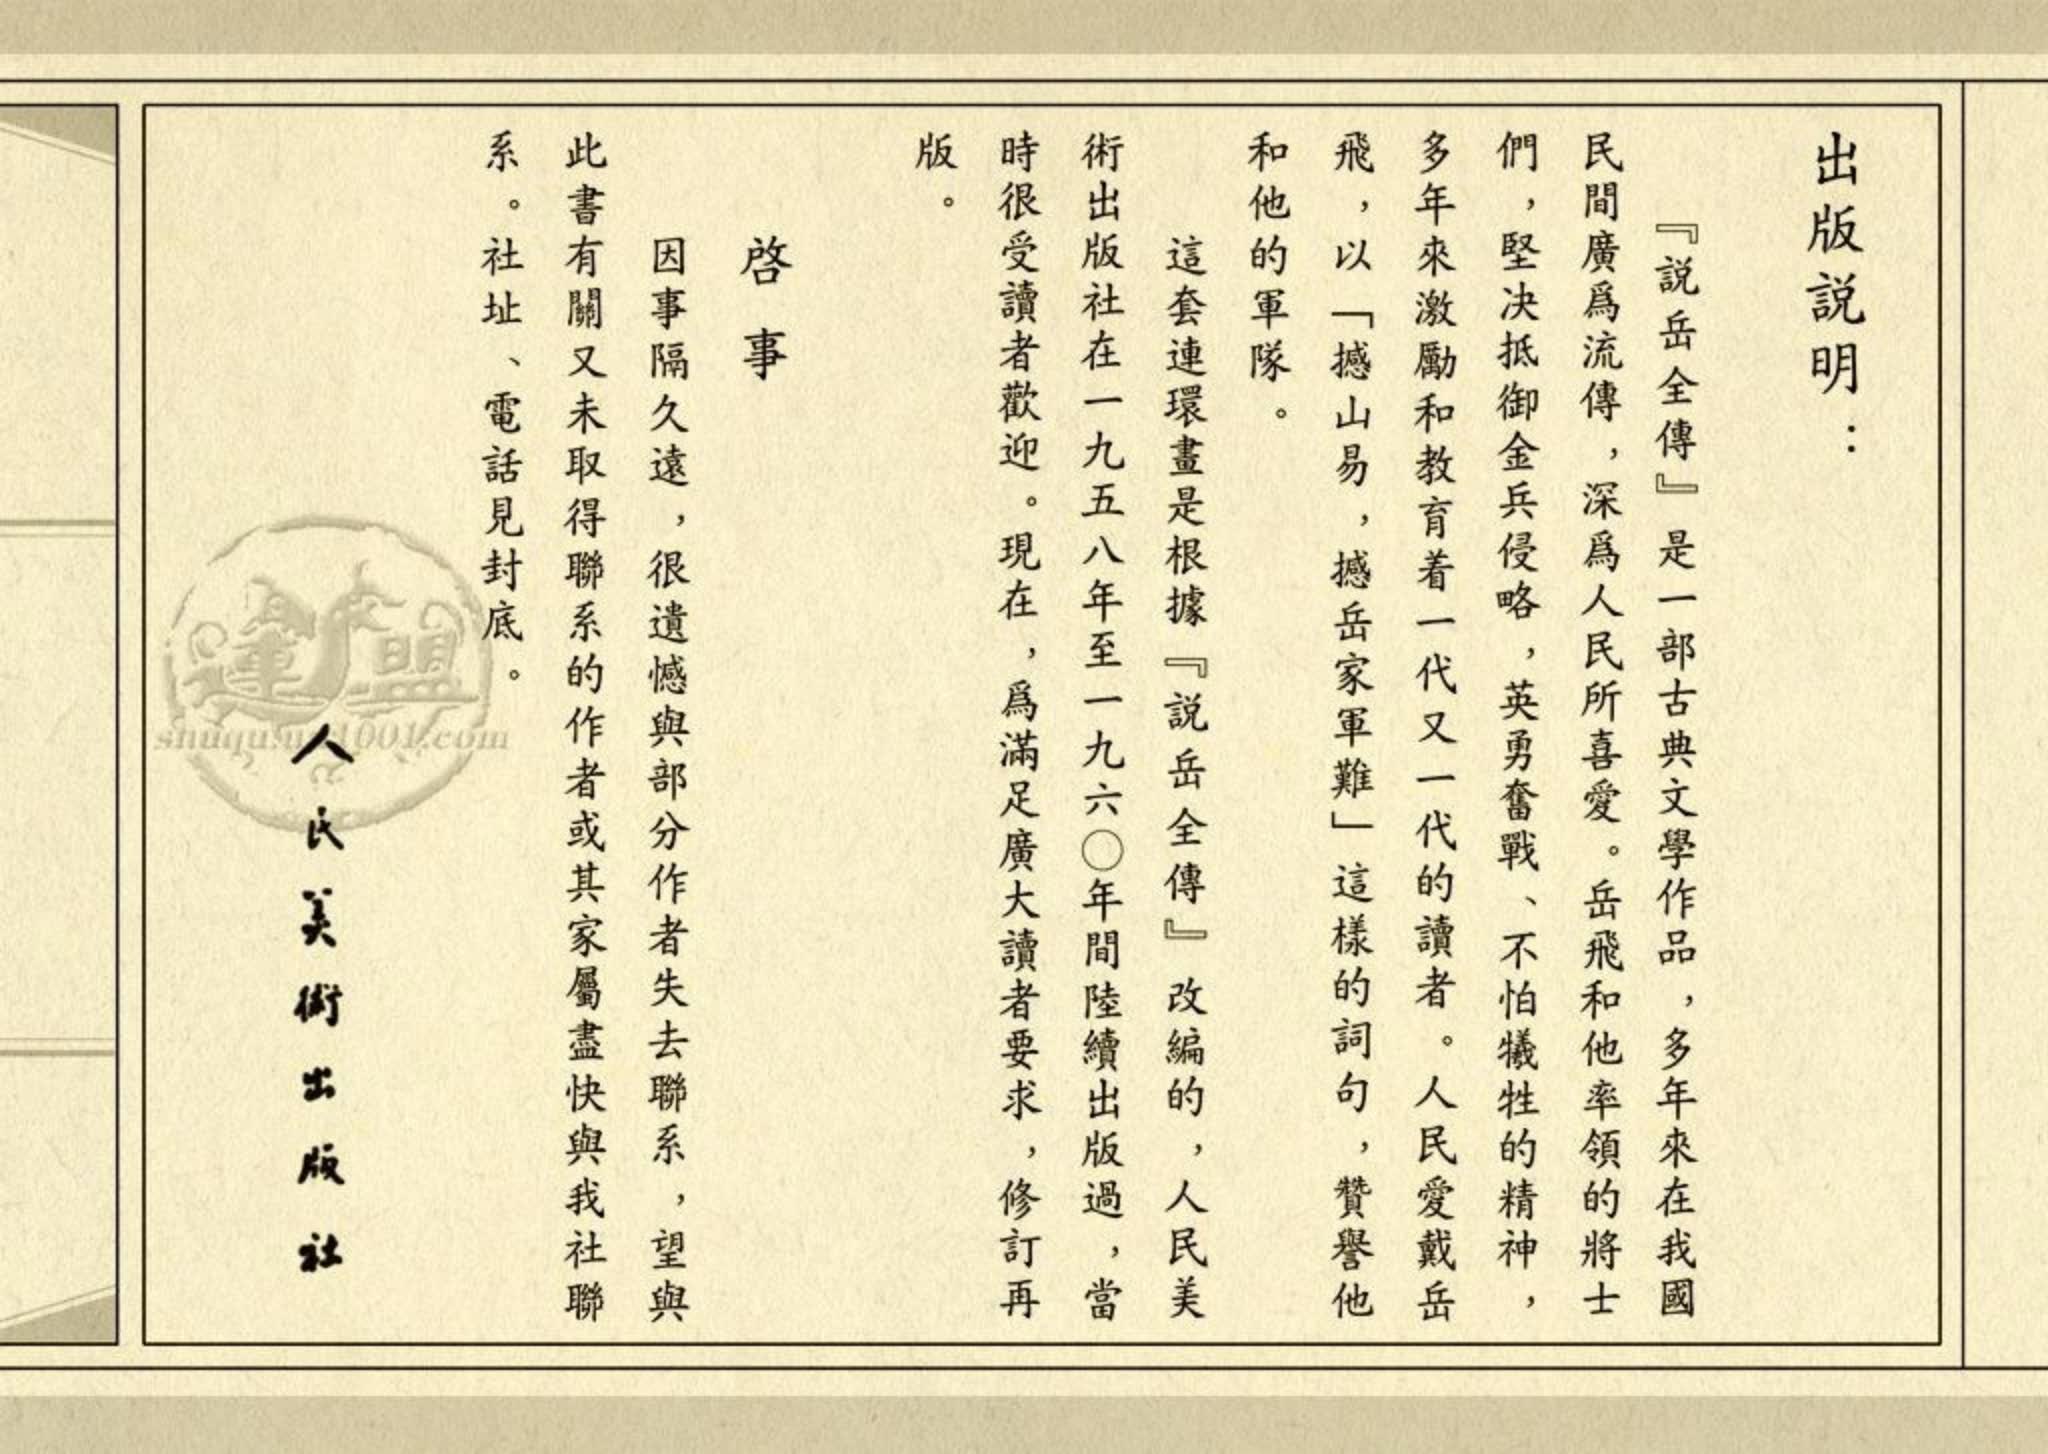 出版説明：
『説岳全傳』是一部古典文學作品，多年來在我國
民間廣爲流傳，深爲人民所喜愛。岳飛和他率領的將士
們，堅决抵御金兵侵略，英勇奮戰、不怕犧牲的精神，
多年來激勵和教育着一代又一代的讀者。人民愛戴岳
飛，以「撼山易，撼岳家軍難」這樣的詞句，贊譽他
和他的軍隊。
這套連環畫是根據『説岳全傳』改編的，人民美
術出版社在一九五八年至一九六〇年間陸續出版過，當
時很受讀者歡迎。現在，爲滿足廣大讀者要求，修訂再
版。
啓事
因事隔久遠，很遺憾與部分作者失去聯系，望與
此書有關又未取得聯系的作者或其家屬盡快與我社聯
系。社址、電話見封底。
人民美術出版社
連盟